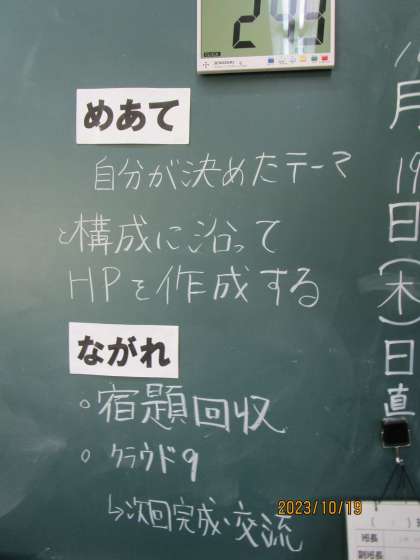 めあて
自分が決めたテーマ
と構成に沿って
HPを作成する
ながれ
○宿題回収
○クラウド9
↳次回完成・交流
月19日(木)日直
2023/10/19
班長
副班長